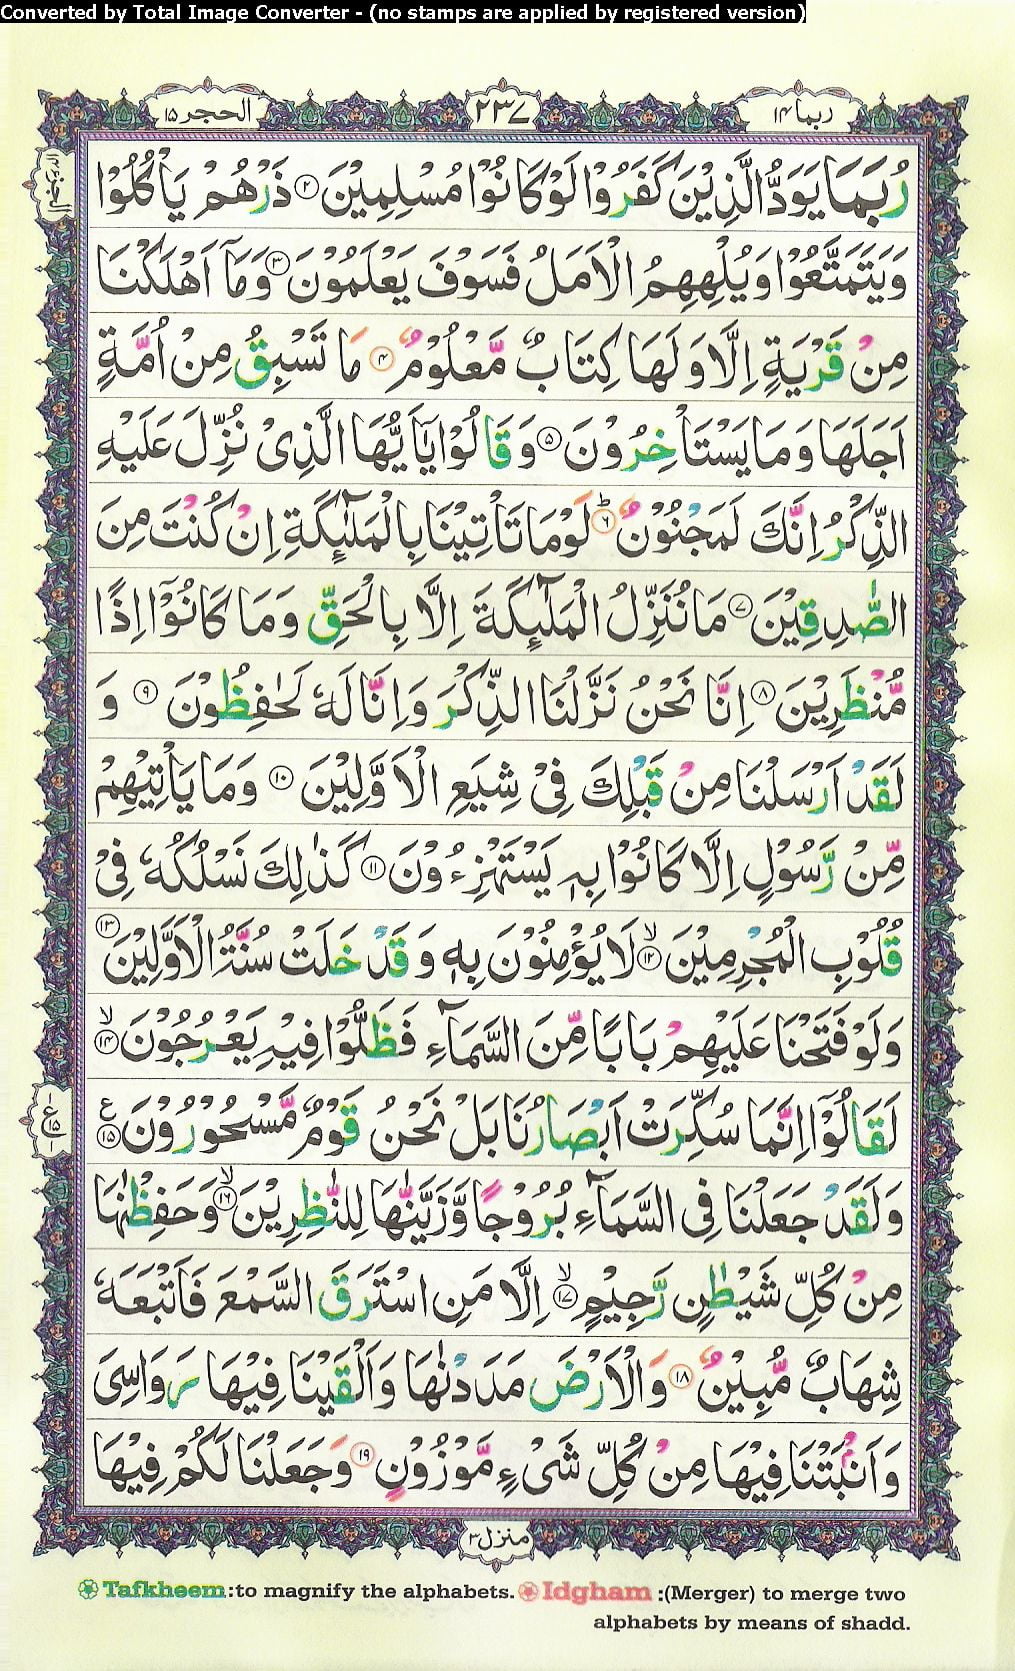 Converted by Total Image Converter - (no stamps are applied by registered version)
ربما ۱۴
۲۳۷
الحجر ۱۵
رُبَمَا يَوَدُّ الَّذِيْنَ كَفَرُوْا لَوْ كَانُوْا مُسْلِمِيْنَ ۲ ذَرْهُمْ يَاْكُلُوْا
وَيَتَمَتَّعُوْا وَيُلْهِهِمُ الْاَمَلُ فَسَوْفَ يَعْلَمُوْنَ ۳ وَمَاۤ اَهْلَكْنَا
مِنْ قَرْيَةٍ اِلَّا وَلَهَا كِتَابٌ مَّعْلُوْمٌ ۴ مَا تَسْبِقُ مِنْ اُمَّةٍ
اَجَلَهَا وَمَا يَسْتَاْخِرُوْنَ ۵ وَقَالُوْا يٰۤاَيُّهَا الَّذِىْ نُزِّلَ عَلَيْهِ
الذِّكْرُ اِنَّكَ لَمَجْنُوْنٌ ؕ ۶ لَوْمَا تَاْتِيْنَا بِالْمَلٰۤئِكَةِ اِنْ كُنْتَ مِنَ
الصّٰدِقِيْنَ ۷ مَا نُنَزِّلُ الْمَلٰۤئِكَةَ اِلَّا بِالْحَقِّ وَمَا كَانُوْۤا اِذًا
مُّنْظَرِيْنَ ۸ اِنَّا نَحْنُ نَزَّلْنَا الذِّكْرَ وَاِنَّا لَهٗ لَحٰفِظُوْنَ ۹ وَ
لَقَدْ اَرْسَلْنَا مِنْ قَبْلِكَ فِىْ شِيَعِ الْاَوَّلِيْنَ ۱۰ وَمَا يَاْتِيْهِمْ
مِّنْ رَّسُوْلٍ اِلَّا كَانُوْا بِهٖ يَسْتَهْزِءُوْنَ ۱۱ كَذٰلِكَ نَسْلُكُهٗ فِىْ
قُلُوْبِ الْمُجْرِمِيْنَ ۙ ۱۲ لَا يُؤْمِنُوْنَ بِهٖ وَقَدْ خَلَتْ سُنَّةُ الْاَوَّلِيْنَ ۱۳
وَلَوْ فَتَحْنَا عَلَيْهِمْ بَابًا مِّنَ السَّمَآءِ فَظَلُّوْا فِيْهِ يَعْرُجُوْنَ ۙ ۱۴
لَقَالُوْۤا اِنَّمَا سُكِّرَتْ اَبْصَارُنَا بَلْ نَحْنُ قَوْمٌ مَّسْحُوْرُوْنَ ۱۵ ع
وَلَقَدْ جَعَلْنَا فِى السَّمَآءِ بُرُوْجًا وَّزَيَّنّٰهَا لِلنّٰظِرِيْنَ ۙ ۱۶ وَحَفِظْنٰهَا
مِنْ كُلِّ شَيْطٰنٍ رَّجِيْمٍ ۙ ۱۷ اِلَّا مَنِ اسْتَرَقَ السَّمْعَ فَاَتْبَعَهٗ
شِهَابٌ مُّبِيْنٌ ۱۸ وَالْاَرْضَ مَدَدْنٰهَا وَاَلْقَيْنَا فِيْهَا رَوَاسِىَ
وَاَنْۢبَتْنَا فِيْهَا مِنْ كُلِّ شَىْءٍ مَّوْزُوْنٍ ۱۹ وَجَعَلْنَا لَكُمْ فِيْهَا
منزل ۳
Tafkheem:to magnify the alphabets. Idgham :(Merger) to merge two
alphabets by means of shadd.